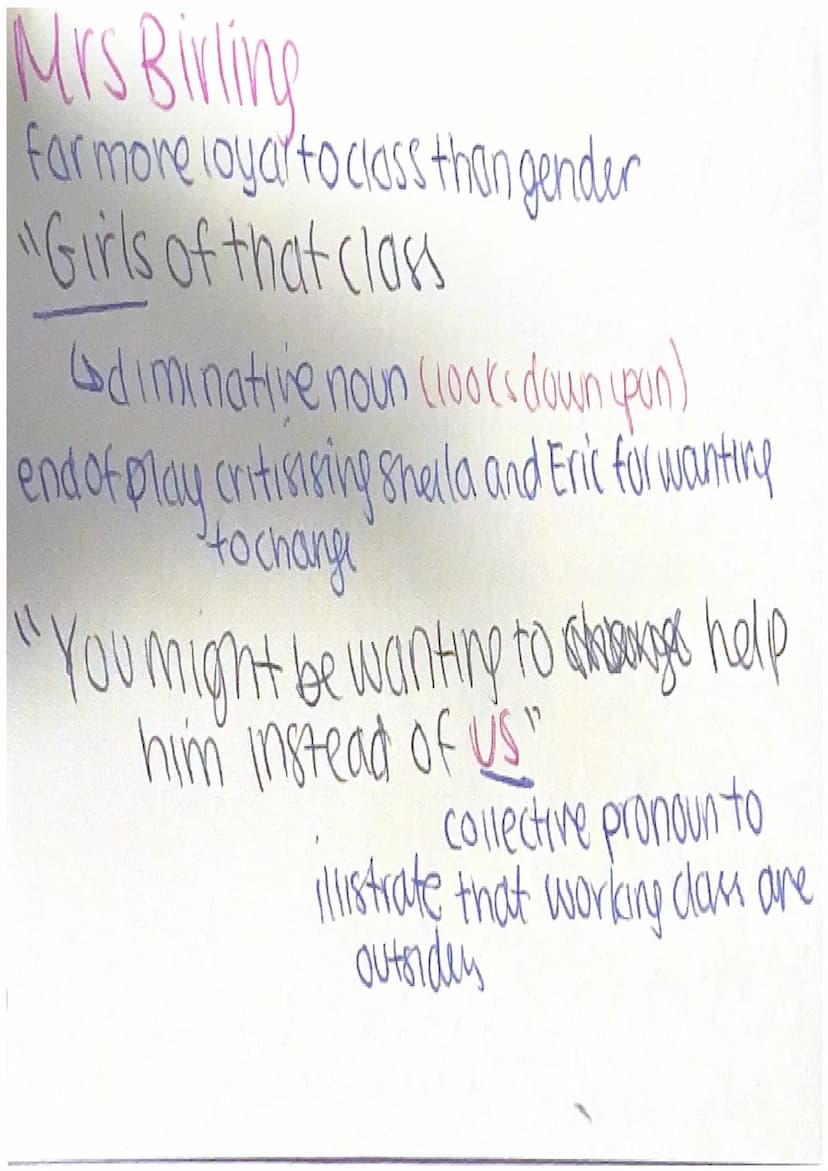 Mrs Birling
far more loyal to class than gender
"Girls of that class
↳ diminative noun (looks down upon)
end of play critisising Sheila and Eric for wanting
to change
"You might be wanting to help
him instead of us"
collective pronoun to
illistrate that working class are
outsiders